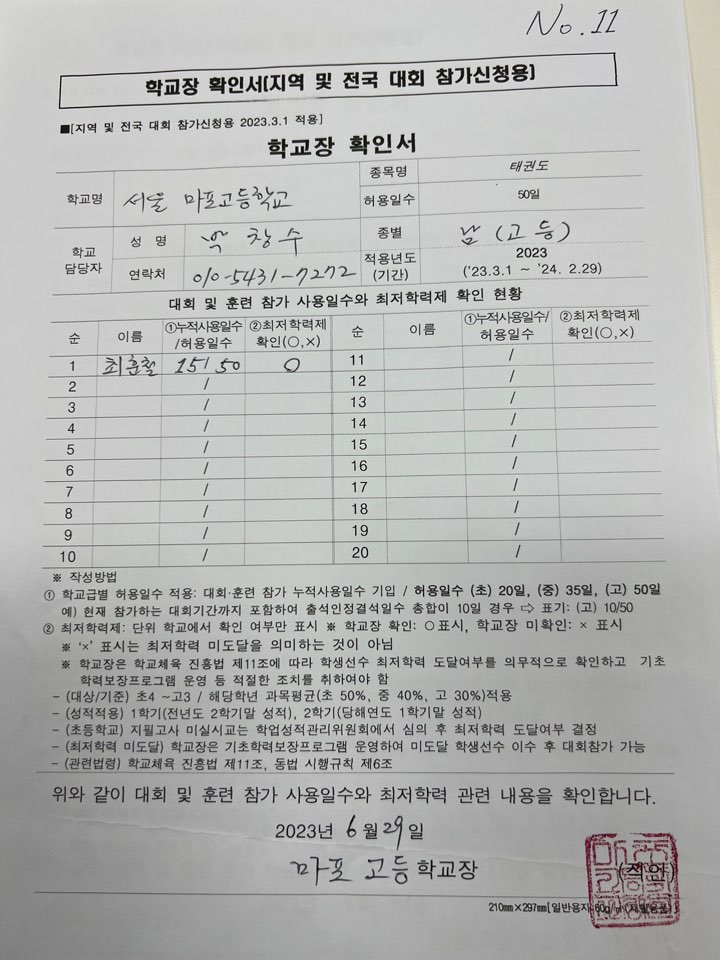 No. 11
학교장 확인서(지역 및 전국 대회 참가신청용)
■[지역 및 전국 대회 참가신청용 2023.3.1 적용]
학교장 확인서
학교명 서울 마포고등학교 종목명 태권도
허용일수 50일
학교 담당자 성 명 창수 종별 남 (고등)
연락처 010-5431-7272 적용년도 (기간) 2023 ('23.3.1 ~ '24. 2.29)
대회 및 훈련 참가 사용일수와 최저학력제 확인 현황
순 이름 ①누적사용일수/허용일수 ②최저학력제 확인(○,×) 순 이름 ①누적사용일수/허용일수 ②최저학력제 확인(○,×)
1 최훈철 15/50 ○ 11 /
2 / 12 /
3 / 13 /
4 / 14 /
5 / 15 /
6 / 16 /
7 / 17 /
8 / 18 /
9 / 19 /
10 / 20 /
※ 작성방법
① 학교급별 허용일수 적용: 대회·훈련 참가 누적사용일수 기입 / 허용일수 (초) 20일, (중) 35일, (고) 50일
예) 현재 참가하는 대회기간까지 포함하여 출석인정결석일수 총합이 10일 경우 ⇨ 표기: (고) 10/50
② 최저학력제: 단위 학교에서 확인 여부만 표시 ※ 학교장 확인: ○표시, 학교장 미확인: × 표시
※ '×' 표시는 최저학력 미도달을 의미하는 것이 아님
※ 학교장은 학교체육 진흥법 제11조에 따라 학생선수 최저학력 도달여부를 의무적으로 확인하고 기초
학력보장프로그램 운영 등 적절한 조치를 취하여야 함
- (대상/기준) 초4 ~고3 / 해당학년 과목평균(초 50%, 중 40%, 고 30%)적용
- (성적적용) 1학기(전년도 2학기말 성적), 2학기(당해연도 1학기말 성적)
- (초등학교) 지필고사 미실시교는 학업성적관리위원회에서 심의 후 최저학력 도달여부 결정
- (최저학력 미도달) 학교장은 기초학력보장프로그램 운영하여 미도달 학생선수 이수 후 대회참가 가능
- (관련법령) 학교체육 진흥법 제11조, 동법 시행규칙 제6조
위와 같이 대회 및 훈련 참가 사용일수와 최저학력 관련 내용을 확인합니다.
2023년 6월 29일
마포 고등학교장 (직인)
210㎜×297㎜[일반용지 60g/㎡(재활용품)]